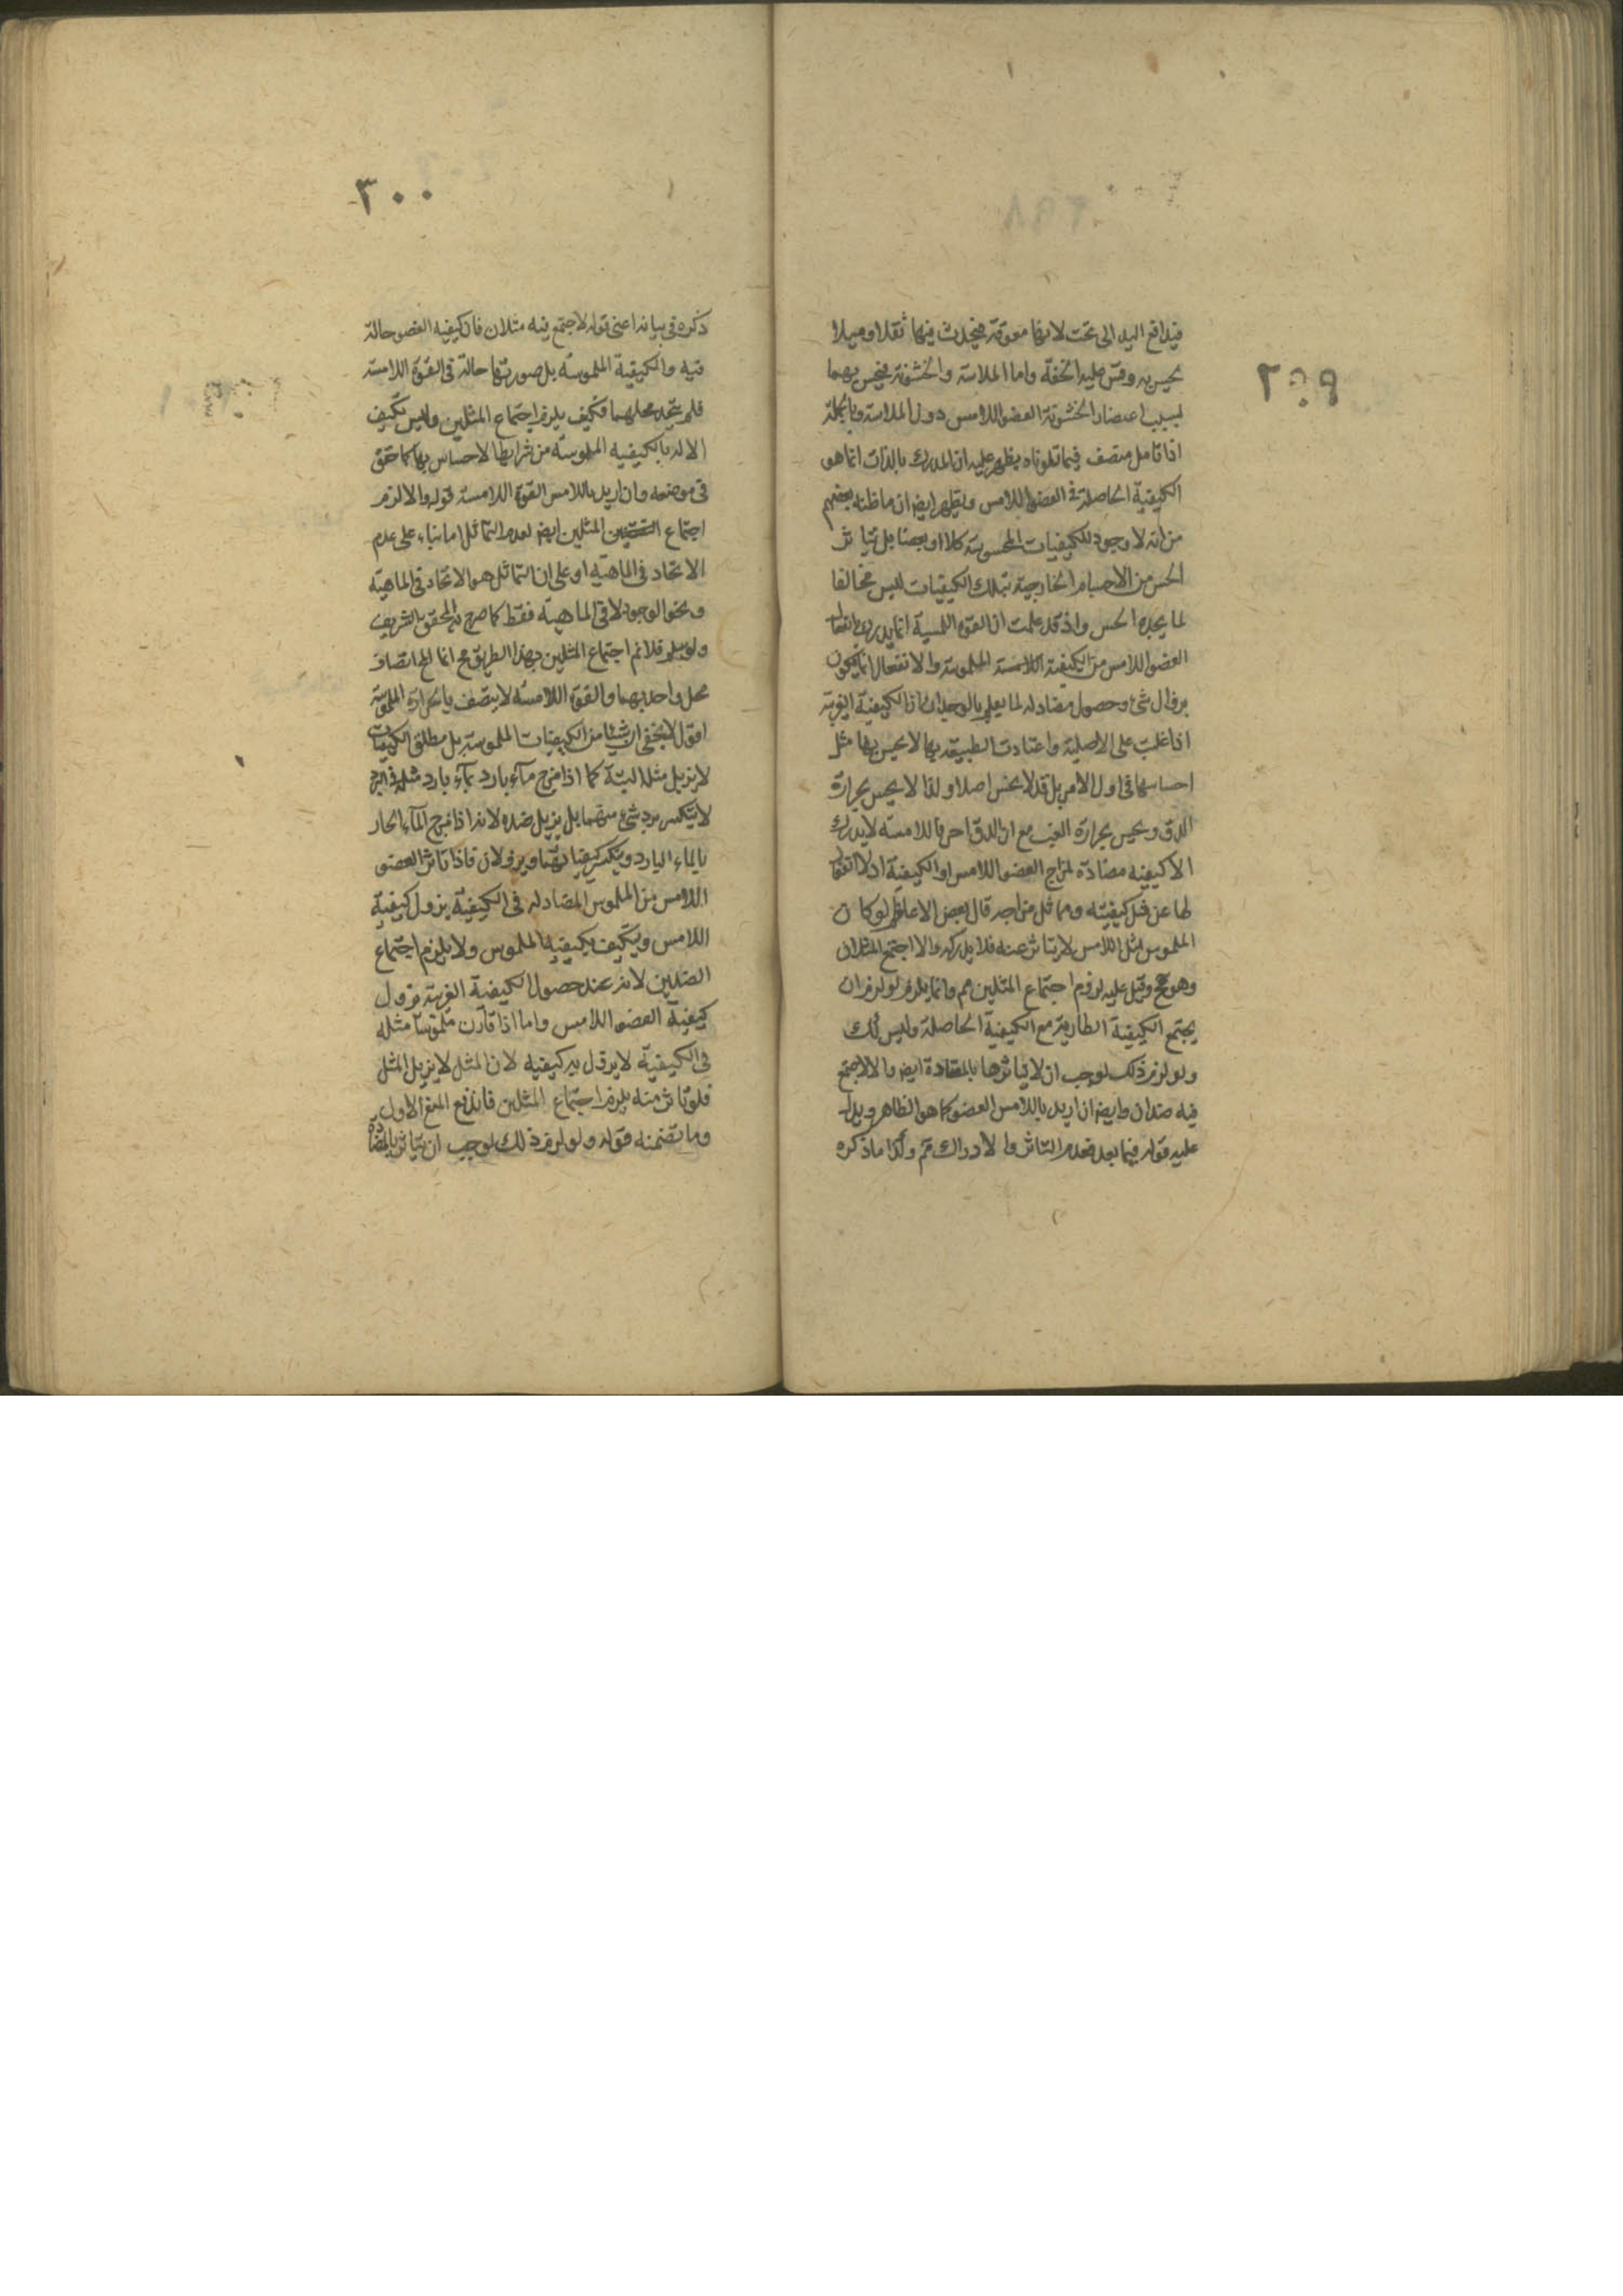 ٢٩٩
فيدافع اليد الى تحت لانها معوقة فيحدث فيها ثقلا وميلا
يحس به وقس عليه الخفة واما الملاسة والخشونة فيحس بهما
لسبب اعتضاد الخشونة العضو اللامس دون الملاسة وبالجملة
اذا تامل منصف فيما تلوناه يظهر عليه ان المدرك بالذات انما هو
الكيفية الحاصلة فى العضو اللامس ويظهر ايضا ان ما ظنه بعضهم
من انه لا وجود للكيفيات المحسوسة كلا او بعضا بل تياثر
الحس من الاجسام الخارجية بتلك الكيفيات ليس مخالفا
لما يجده الحس واذ قد علمت ان القوة اللمسية انما يدرك بانفعال
العضو اللامس من الكيفية الملموسة والانفعال انما يكون
بزوال شئ وحصول مضاد له لما يعلم بالوجدان اذ الكيفية الغريبة
اذا غلبت على الاصلية واعتادت الطبيعة بها لا يحس بها مثل
احساسها فى اول الامر بل قد لا يحس اصلا ولذا لا يحس بحرارة
الدق ويحس بحرارة الغب مع ان الدق احر فاللامسة لا يدرك
الا كيفية مضادة لمزاج العضو اللامس او الكيفية اذ لا انفعال
لها عن مثل كيفيته ومماثل مزاجه قال بعض الاعاظم لو كان
الملموس مثل اللامس لم يتاثر عنه فلا يدركه والا اجتمع المثلان
وهو مح وقيل عليه لزوم اجتماع المثلين مم وانما يلزم لو لزم ان
يجتمع الكيفية الطارية مع الكيفية الحاصلة وليس كك
ولو لزم ذلك لوجب ان لا يتاثرها بالمضادة ايضا والا لاجتمع
فيه ضدان وايضا ان اريد باللامس العضو كما هو الظاهر ويدل
عليه قوله فيما بعد فعدم التاثر والادراك مم وكذا ما ذكره
٣٠٠
ذكره فى بيانه اعنى قوله لاجتمع فيه مثلان فان كيفية العضو حالة
فيه والكيفية الملموسة بل صورتها حالة فى القوة اللامسة
فلم يتحد محلهما فكيف يلزم اجتماع المثلين وليس تكيف
الالة بالكيفية الملموسة من شرايط الاحساس بها كما حقق
فى موضعه وان اريد باللامس القوة اللامسة قوله والا لزم
اجتماع المثلين ايضا لعدم التماثل اما بناء على عدم
الاتحاد فى الماهية او على ان التماثل هو الاتحاد فى الماهية
ونحو الوجود لا فى الماهية فقط كما صرح به المحقق الشريف
ولو سلم فلانم اجتماع المثلين بهذا الطريق مح انما المح اتصاف
محل واحد بهما والقوة اللامسة لا يتصف بالحرارة الملموسة
اقول لا يخفى ان شيئا من الكيفيات الملموسة بل مطلق الكيفيات
لا يزيل مثله البتة كما اذا مزج ماء بارد بماء بارد مثله فى البرد
لا ينكسر برد شئ منهما بل يزيل ضده لانه اذا مزج الماء الحار
بالماء البارد وينكسر كيفياتهما ويزولان فاذا تاثر العضو
اللامس من الملموس المضاد له فى الكيفية يزول كيفية
اللامس ويتكيف بكيفية الملموس ولا يلزم اجتماع
الضدين لانه عند حصول الكيفية الغريبة تزول
كيفية العضو اللامس واما اذا قارن ملموسا مثله
فى الكيفية لا يزول به كيفيه لان المثل لا يزيل المثل
فلو تاثر منه يلزم اجتماع المثلين فاندفع المنع الاول
وما تضمنه قوله ولو لزم ذلك لوجب ان يتاثر بالمضادة